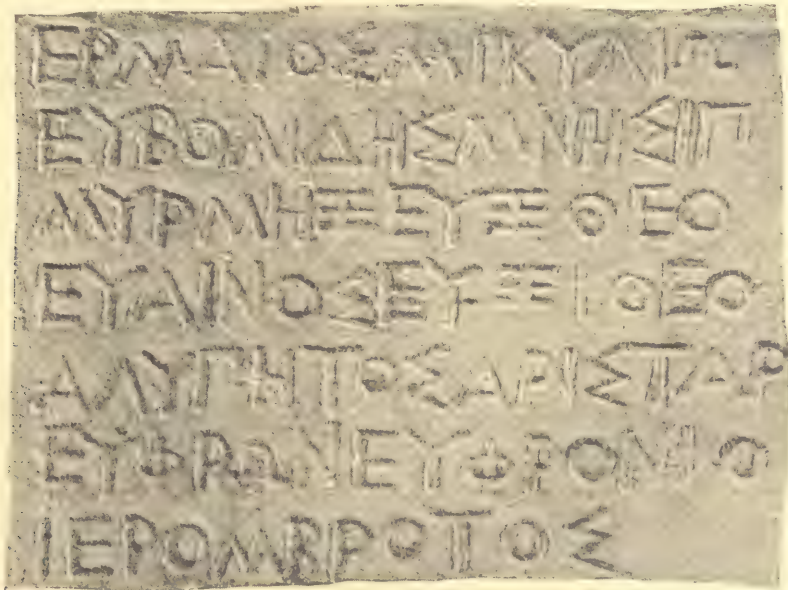 ΕΡΜΑΙΟΣΜΙΚΥΛΙΩ
ΕΥΒΟΛΙΔΗΣΑΙΝΗΣΙΠ
ΜΥΡΜΗΞΕΥΞΙΘΕΟ
ΕΥΑΙΝΟΣΕΥΞΙΘΕΟ
ΑΛΥΠΗΤΟΣΑΡΙΣΤΑΡ
ΕΥΦΡΩΝΕΥΦΡΟΝΙΟ
ΙΕΡΟΜΒΡΟΤΟΣ